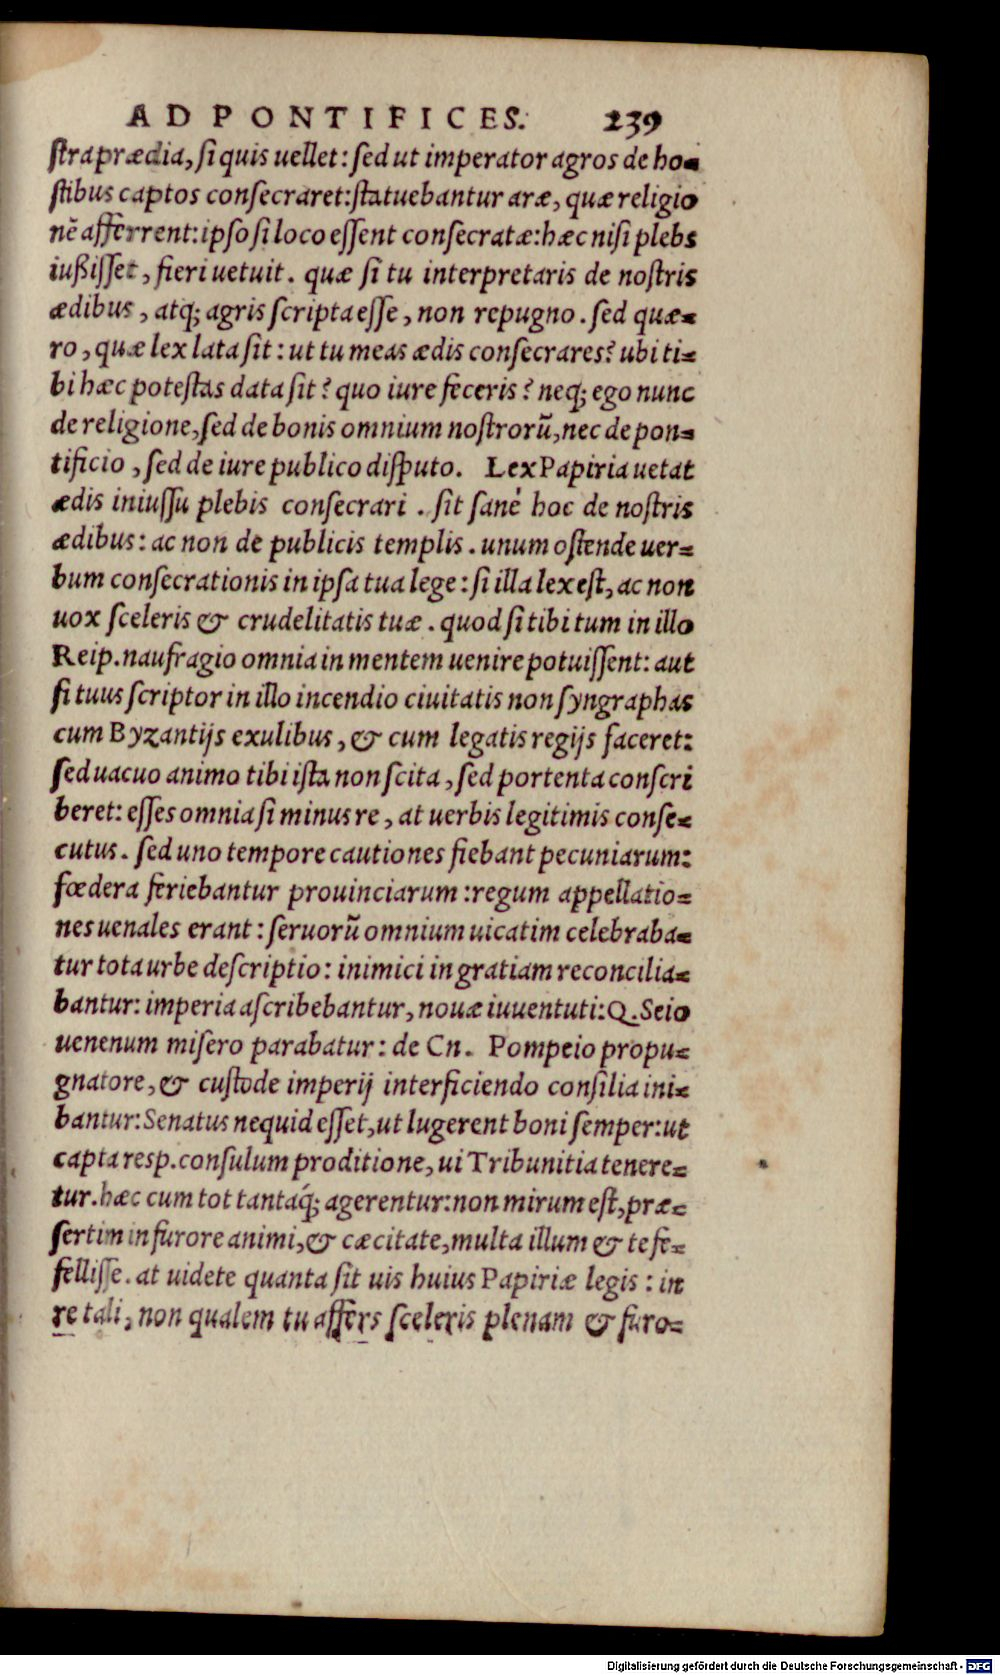 AD PONTIFICES. 239
stra prædia, si quis uellet: sed ut imperator agros de ho-
stibus captos consecraret: statuebantur aræ, quæ religio
nẽ afferrent: ipso si loco essent consecratæ: hæc nisi plebs
iußisset, fieri uetuit. quæ si tu interpretaris de nostris
ædibus, atq; agris scripta esse, non repugno. sed quæ-
ro, quæ lex lata sit: ut tu meas ædis consecrares? ubi ti-
bi hæc potestas data sit? quo iure feceris? neq; ego nunc
de religione, sed de bonis omnium nostrorũ, nec de pon-
tificio, sed de iure publico disputo. Lex Papiria uetat
ædis iniussu plebis consecrari. sit sanè hoc de nostris
ædibus: ac non de publicis templis. unum ostende uer-
bum consecrationis in ipsa tua lege: si illa lex est, ac non
uox sceleris & crudelitatis tuæ. quod si tibi tum in illo
Reip. naufragio omnia in mentem uenire potuissent: aut
si tuus scriptor in illo incendio ciuitatis non syngraphas
cum Byzantijs exulibus, & cum legatis regijs faceret:
sed uacuo animo tibi ista non scita, sed portenta conscri
beret: esses omnia si minus re, at uerbis legitimis conse-
cutus. sed uno tempore cautiones fiebant pecuniarum:
fœdera feriebantur prouinciarum: regum appellatio-
nes uenales erant: seruorũ omnium uicatim celebraba-
tur tota urbe descriptio: inimici in gratiam reconcilia-
bantur: imperia ascribebantur, nouæ iuuentuti: Q. Seio
uenenum misero parabatur: de Cn. Pompeio propu-
gnatore, & custode imperij interficiendo consilia ini-
bantur: Senatus nequid esset, ut lugerent boni semper: ut
capta resp. consulum proditione, ui Tribunitia tenere-
tur. hæc cum tot tantaq́; agerentur: non mirum est, præ-
sertim in furore animi, & cæcitate, multa illum & te fe-
fellisse. at uidete quanta sit uis huius Papiriæ legis: in
re tali, non qualem tu affers sceleris plenam & furo-
Digitalisierung gefördert durch die Deutsche Forschungsgemeinschaft - DFG